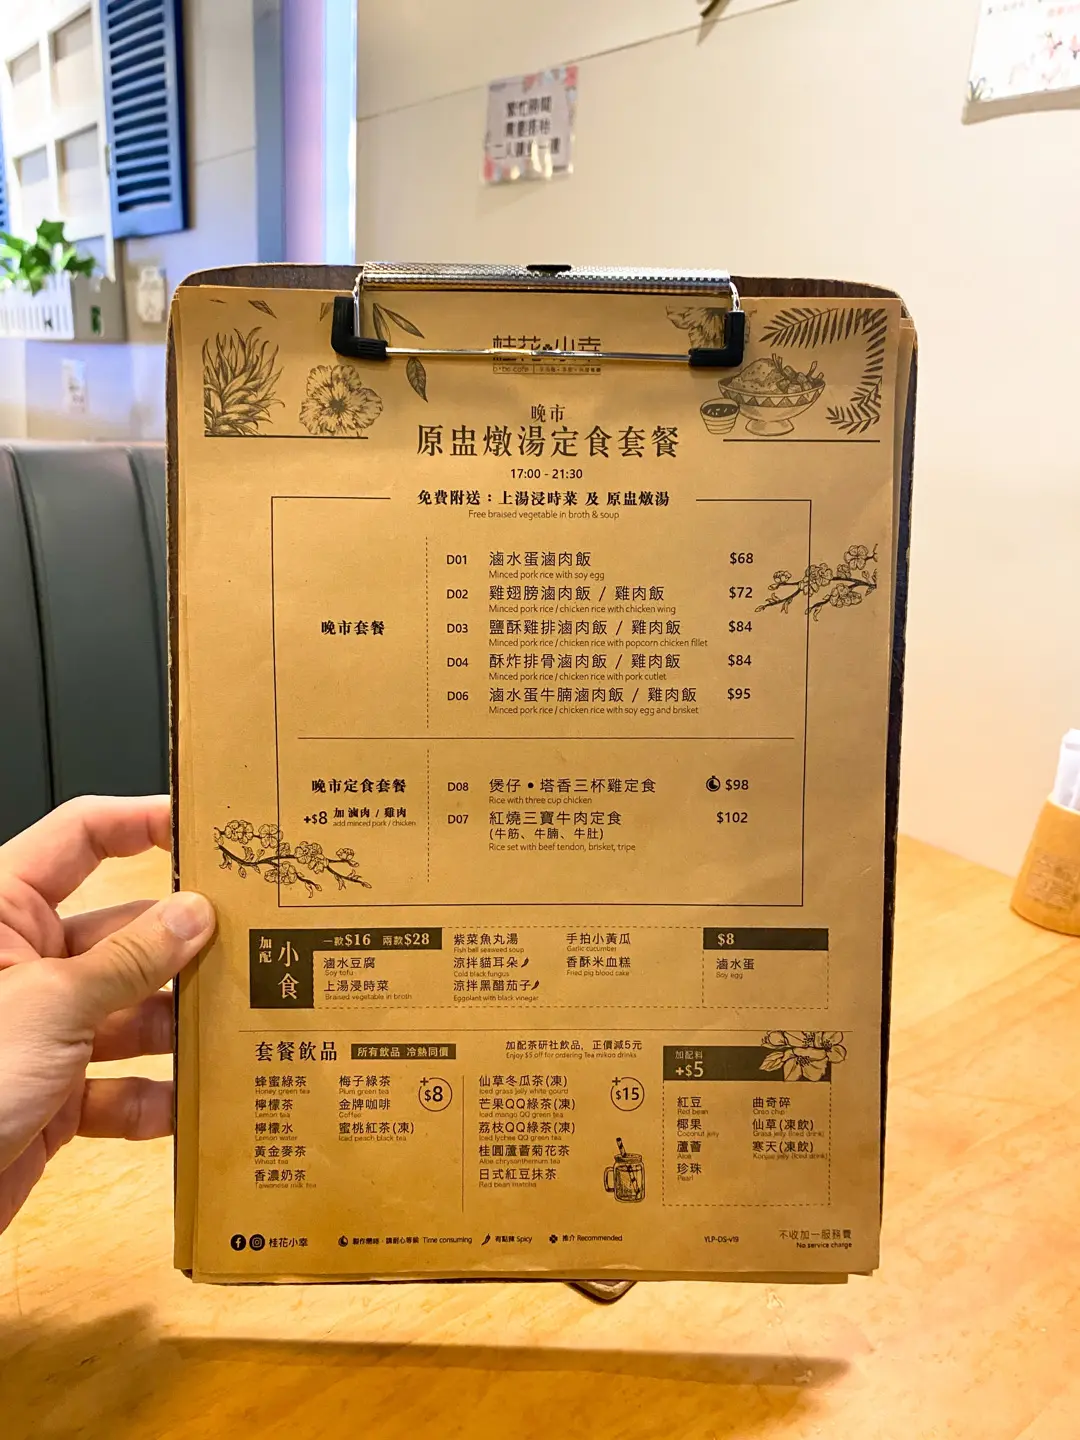 繁忙時間
需要搭枱
桂花小幸
晚市
原盅燉湯定食套餐
17:00 - 21:30
免費附送：上湯浸時菜 及 原盅燉湯
Free braised vegetable in broth & soup
晚市套餐
D01 滷水蛋滷肉飯 $68
Minced pork rice with soy egg
D02 雞翅膀滷肉飯 / 雞肉飯 $72
Minced pork rice / chicken rice with chicken wing
D03 鹽酥雞排滷肉飯 / 雞肉飯 $84
Minced pork rice / chicken rice with popcorn chicken fillet
D04 酥炸排骨滷肉飯 / 雞肉飯 $84
Minced pork rice / chicken rice with pork cutlet
D06 滷水蛋牛腩滷肉飯 / 雞肉飯 $95
Minced pork rice / chicken rice with soy egg and brisket
晚市定食套餐
+$8 加滷肉 / 雞肉
add minced pork / chicken
D08 煲仔•塔香三杯雞定食 $98
Rice with three cup chicken
D07 紅燒三寶牛肉定食 $102
(牛筋、牛腩、牛肚)
Rice set with beef tendon, brisket, tripe
加配
小食
一款$16 兩款$28
滷水豆腐
Soy tofu
上湯浸時菜
Braised vegetable in broth
紫菜魚丸湯
Fish ball seaweed soup
涼拌貓耳朵
Cold black fungus
涼拌黑醋茄子
Eggplant with black vinegar
手拍小黃瓜
Garlic cucumber
香酥米血糕
Fried pig blood cake
$8
滷水蛋
Soy egg
套餐飲品 所有飲品 冷熱同價
蜂蜜綠茶
Honey green tea
檸檬茶
Lemon tea
檸檬水
Lemon water
黃金麥茶
Wheat tea
香濃奶茶
Taiwanese milk tea
梅子綠茶
Plum green tea
金牌咖啡
Coffee
蜜桃紅茶(凍)
Iced peach black tea
+$8
加配茶研社飲品，正價減5元
Enjoy $5 off for ordering Tea mikoo drinks
仙草冬瓜茶(凍)
Iced grass jelly white gourd
芒果QQ綠茶(凍)
Iced mango QQ green tea
荔枝QQ綠茶(凍)
Iced lychee QQ green tea
桂圓蘆薈菊花茶
Aloe chrysanthemum tea
日式紅豆抹茶
Red bean matcha
+$15
加配料
+$5
紅豆
Red bean
椰果
Coconut jelly
蘆薈
Aloe
珍珠
Pearl
曲奇碎
Oreo chip
仙草(凍飲)
Grass jelly (Iced drink)
寒天(凍飲)
Konjac jelly (Iced drink)
桂花小幸
製作需時，請耐心等候 Time consuming
有點辣 Spicy
推介 Recommended
YLP-DS-v19
不收加一服務費
No service charge